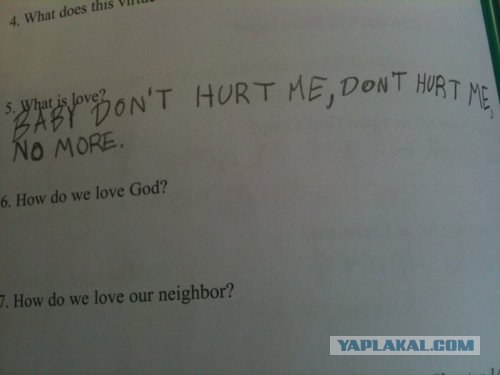 4. What does this virtue
5. What is love?
BABY DON'T HURT ME, DON'T HURT ME,
NO MORE.
6. How do we love God?
7. How do we love our neighbor?
YAPLAKAL.COM